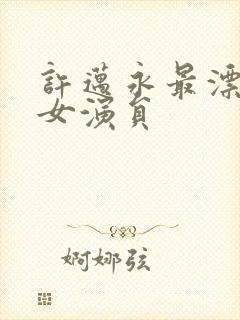 許邁永最漂
女演員
婀娜弦